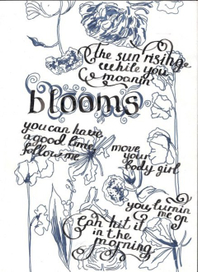 the sun rising
while you
moanin
blooms
you can have
a good time
follow me
move
your
body girl
you turnin
me on
can hit it
in the
morning